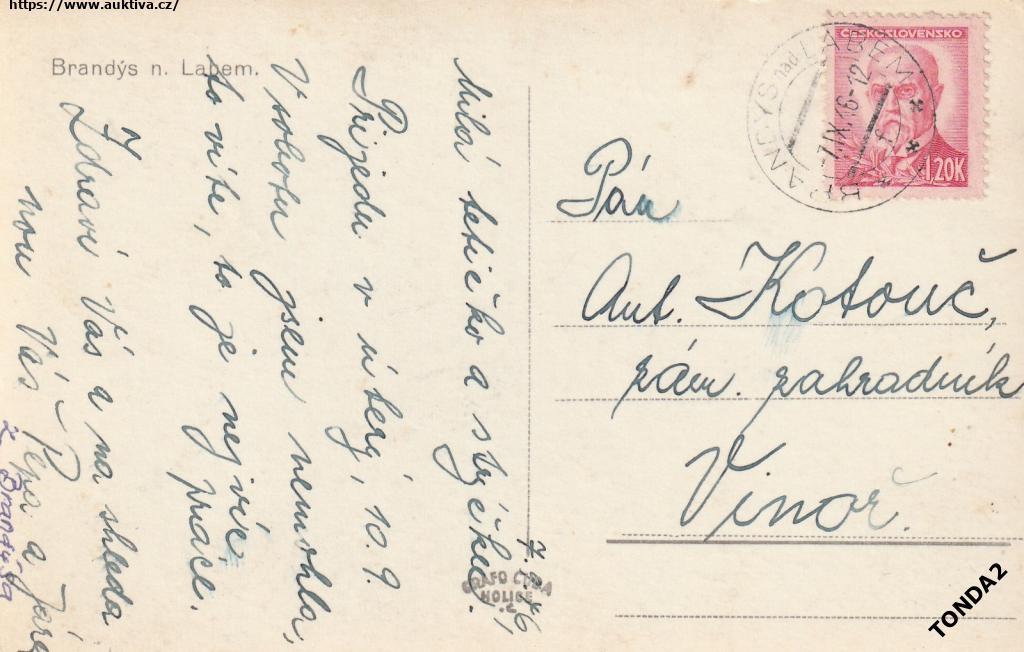 https://www.auktiva.cz/
Brandýs n. Labem.
BRANDÝS nad LABEM
-7.IX.46-12
ČESKOSLOVENSKO
1,20K
7.9.46,
Milá tetičko a strýčku,
Přijedu v úterý, 10.9.
V sobotu jsem nemohla,
to víte, to je nejvíc
práce.
Zdraví Vás a na shleda
nou Vás Pepa a Jára
z Brandýsa
Pán
Ant. Kotouč,
zám. zahradník
Vinoř.
GRAFO ČUDA
HOLICE
TONDA2